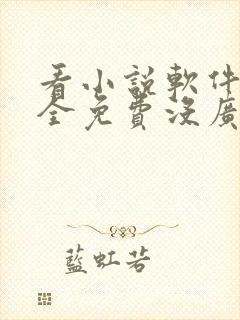 看小說軟件
全免費沒廣
藍虹若